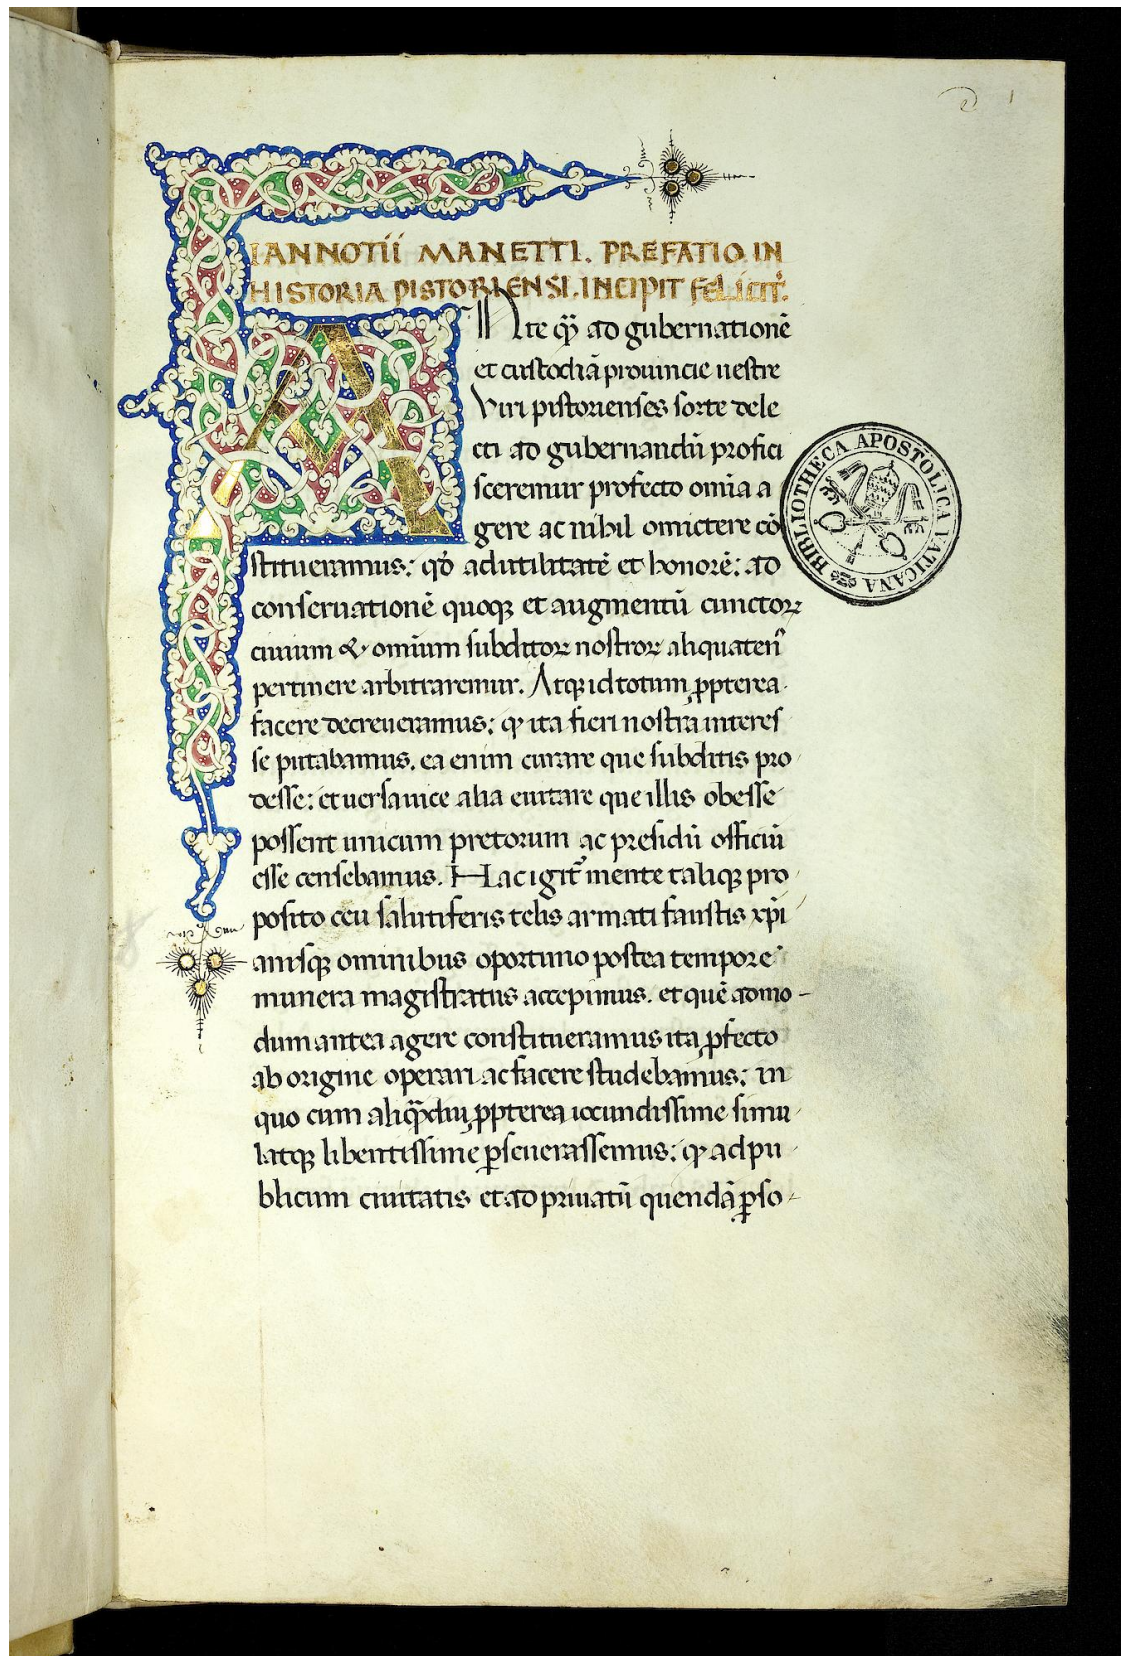 IANNOTII MANETTI. PREFATIO IN
HISTORIA PISTORIENSI. INCIPIT FELICIT᷑.
ANte qȝ ad gubernationē
et custodiā prouincie uestre
Viri pistorienses sorte dele
cti ad gubernandū profici
sceremur profecto omīa a
gere ac nihil omictere cō
stitueramus: qđ ad utilitatē et honorē: ad
conseruationē quoqȝ et augmentū cunctoꝝ
ciuium & omium subditoꝝ nostroꝝ aliquaten᾽
pertinere arbitraremur. Atqȝ id totum ꝓpterea
facere decreueramus: ꝙ ita fieri nostra interes
se putabamus. ea enim curare que subditis pro
desse: et uersa uice alia euitare que illis obesse
possent unicum pretorum ac presidū officiū
esse censebamus. Hac igit᷑ mente taliqȝ pro
posito ceu salutiferis telis armati faustis xp̄i
anisqȝ ominibus oportuno postea tempore
munera magistratus accepimus. et quē admo-
dum antea agere constitueramus ita ꝓfecto
ab origine operari ac facere studebamus: in
quo cum aliqȝdiu ꝓpterea iocundissime simu
latqȝ libentissime ꝑseuerassemus: ꝙ ad pu
blicum ciuitatis et ad priuatū quendā ꝑso-
BIBLIOTHECA APOSTOLICA VATICANA
1